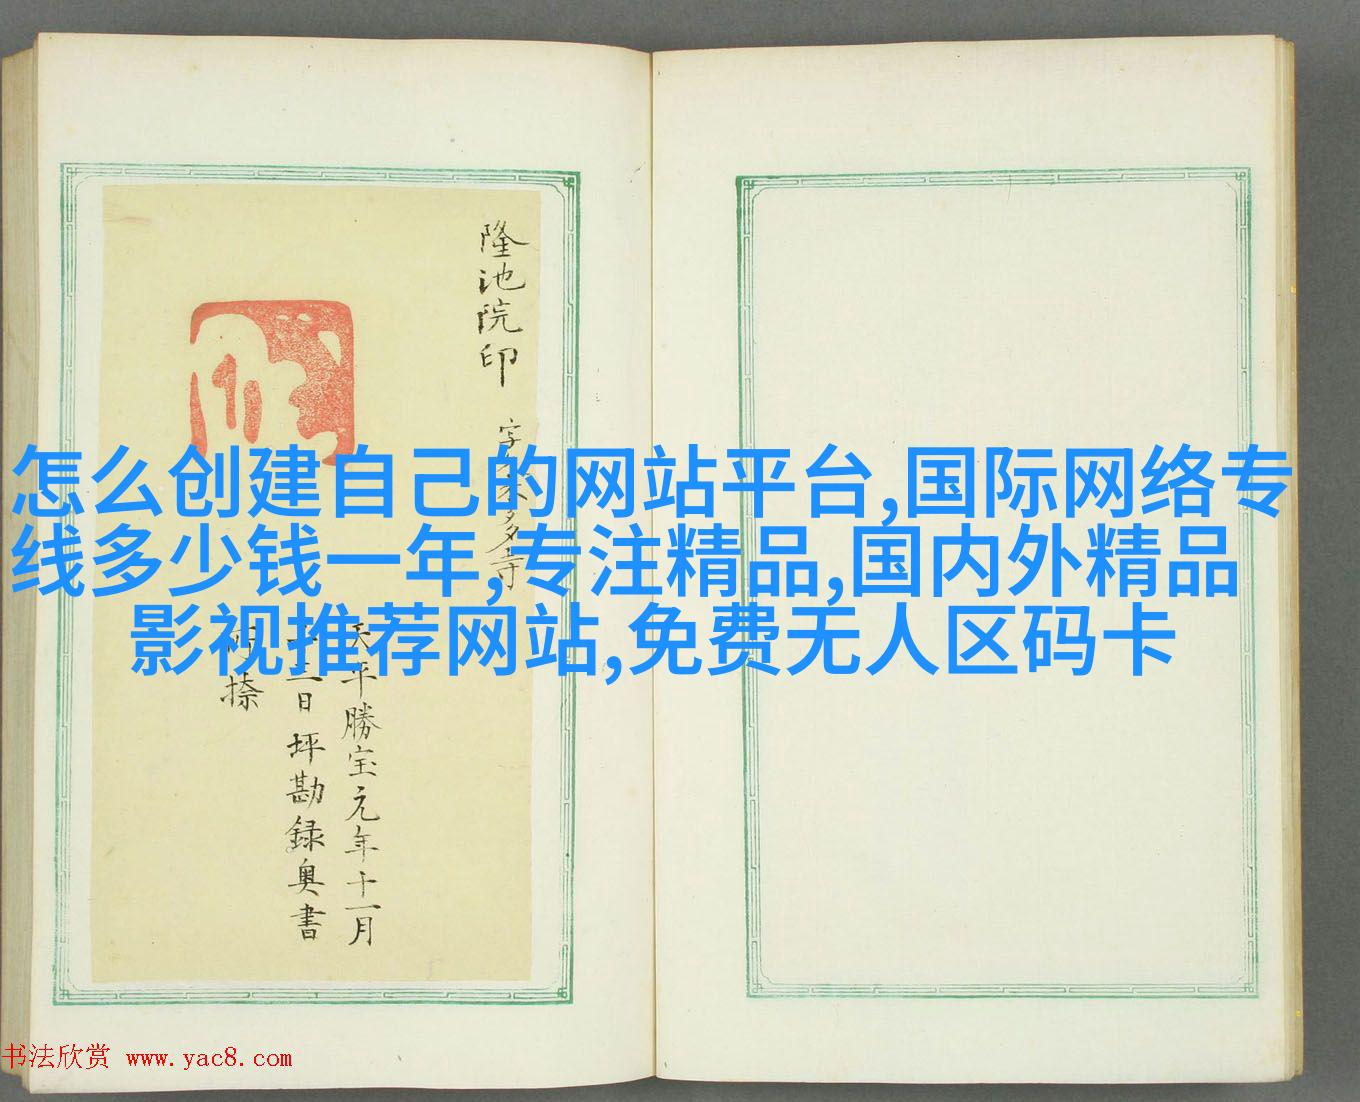 隆池院印
怎么创建自己的网站平台,国际网络专
线多少钱一年,专注精品,国内外精品
影视推荐网站,免费无人区码卡
天平勝宝元年十一月
十三日坪勘録奥書
捺
书法欣赏 www.yac8.com